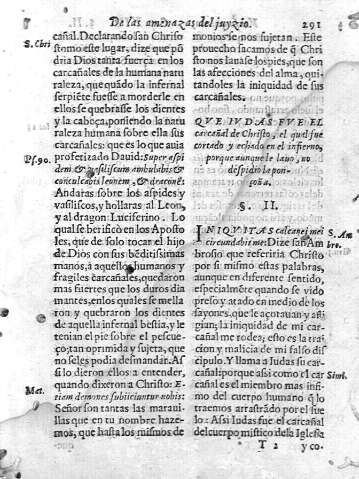 De las amenazas del juyzio. 291
cañal. Declarando san Chriso
stomo este lugar, dize que põ
dria Dios tanta fuerça en los
carcañales de la humana natu
raleza, que quãdo la infernal
serpiẽte fuesse a morderle en
ellos se quebrasse los dientes
y la cabeça, poniendo la natu
raleza humana sobre ella sus
carcañales: que es lo que auia
profetizado Dauid: Super aspi
dem & vasiliscum ambulabis &
conculcabis leonem, & draconẽ:
Andaras sobre los aspides y
vasiliscos, y hollaras al Leon,
y al dragon Luciferino. Lo
qual se berificò en los Aposto
les, que de solo tocar el hijo
de Dios con sus bẽditissimas
manos, à aquellos humanos y
fragiles carcañales, quedaron
mas fuertes que los duros dia
mantes, en los quales se mella
ron y quebraron los dientes
de aquella infernal bestia, y le
tenian el pie sobre el pescue-
ço; tan oprimida y sujeta, que
no se les podia desmandar. As
si lo dieron ellos a entender,
quando dixeron a Christo: E-
tiam demones subijciuntur nobis:
Señor son tantas las maraui-
llas que en tu nombre haze-
mos, que hasta los mismos de
S. Chri
Ps. 90.
Mat.
monios se nos sujetan. Este
prouecho sacamos de q̃ Chri
sto nos lauasse los pies, que son
las afecciones del alma, qui-
tandoles la iniquidad de sus
carcañales.
QVE IVDAS FVE EL
carcañal de Christo, el qual fue
cortado y echado en el infierno,
porque aunque le lauo, no
despidio la pon-
çoña.
§. II.
INIQVITAS calcanei mei
circundabit me: Dize san Am
brosio que referiria Christo
por si mismo estas palabras,
aunque en diferente sentido,
especialmente quando se vido
preso y atado en medio de los
sayones, que le açotauan y afli
gian; la iniquidad de mi car-
cañal me rodea; esto es la tray
cion y malicia de mi falso dis
cipulo. Y llama a Iudas su car
cañal: porque assi como el car
cañal es el miembro mas infi
mo del cuerpo humano q̃ lo
traemos arrastrãdo por el sue
lo: Assi Iudas fue el carcañal
del cuerpo mistico de la Iglesia
S. Am
Simi.
T 2 y co-